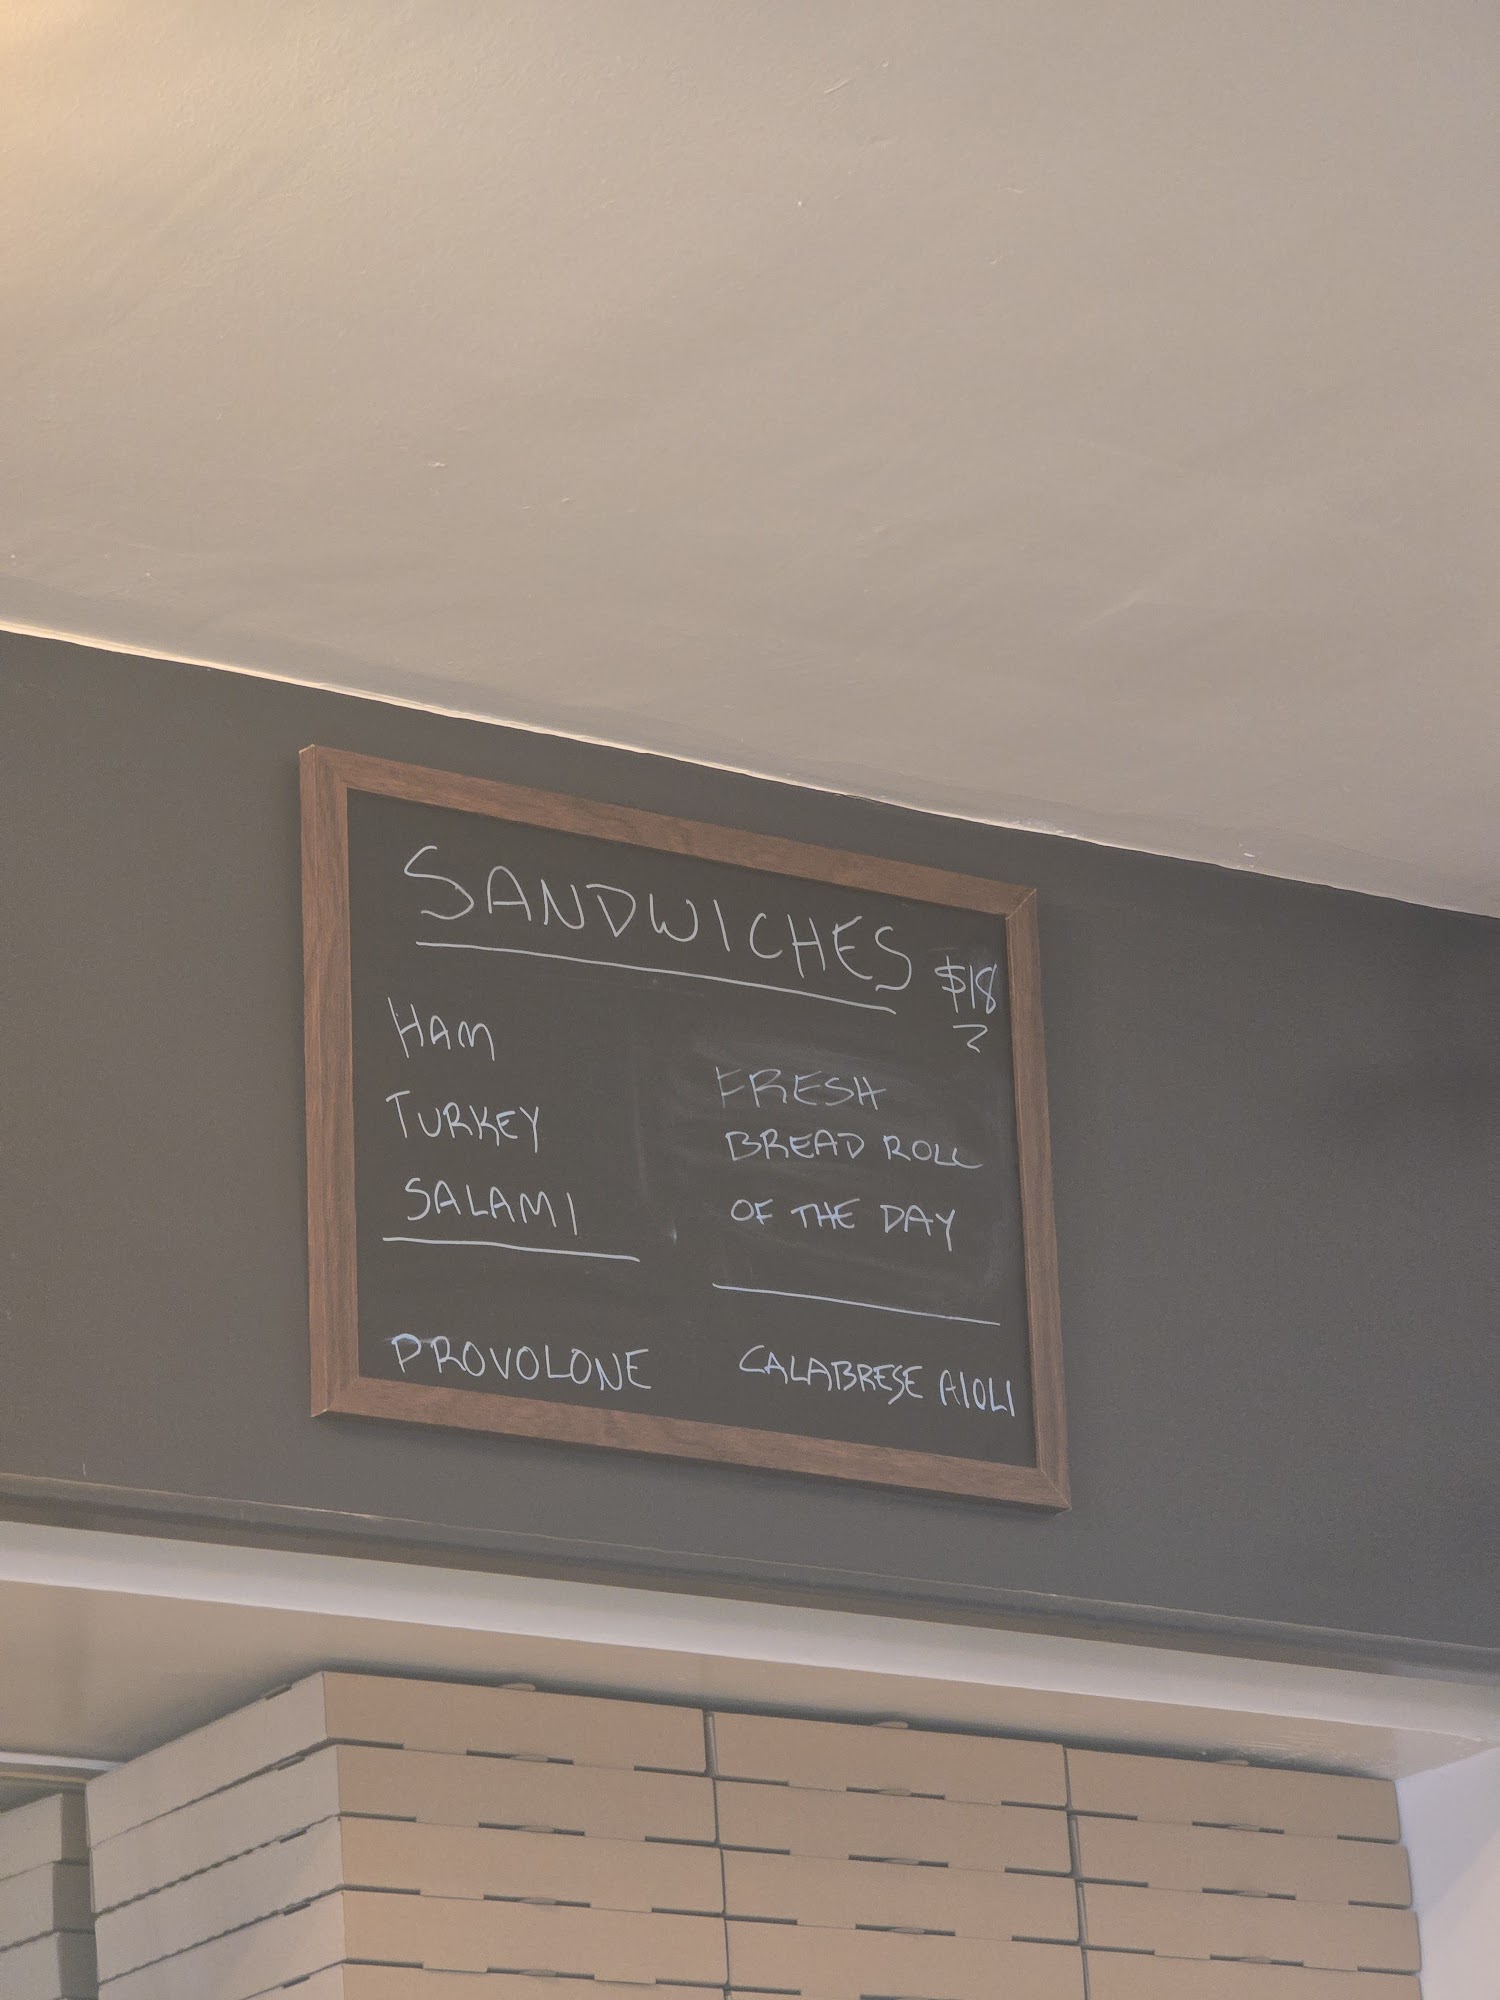 SANDWICHES
$18
HAM
TURKEY
SALAMI
PROVOLONE
FRESH
BREAD ROLL
OF THE DAY
CALABRESE AIOLI